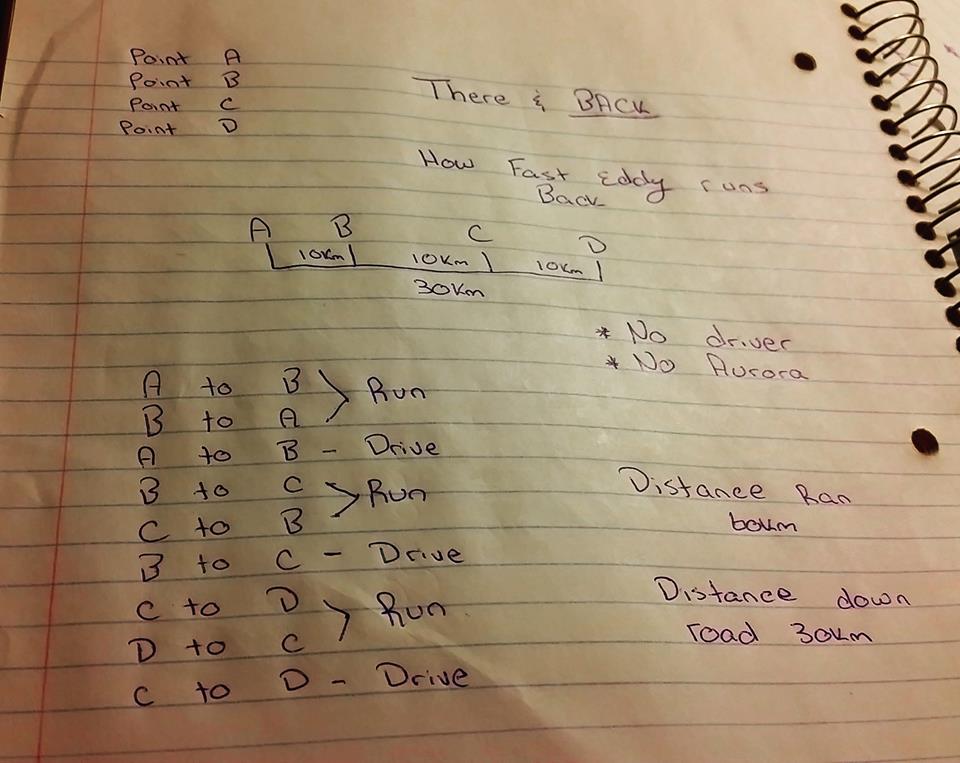 Point A
Point B
Point C
Point D
There & BACK
How Fast Eddy runs
Back
A B C D
10Km 10Km 10Km
30Km
* No driver
* No Aurora
A to B > Run
B to A
A to B - Drive
B to C > Run
C to B
B to C - Drive
C to D > Run
D to C
C to D - Drive
Distance Ran
60km
Distance down
road 30km